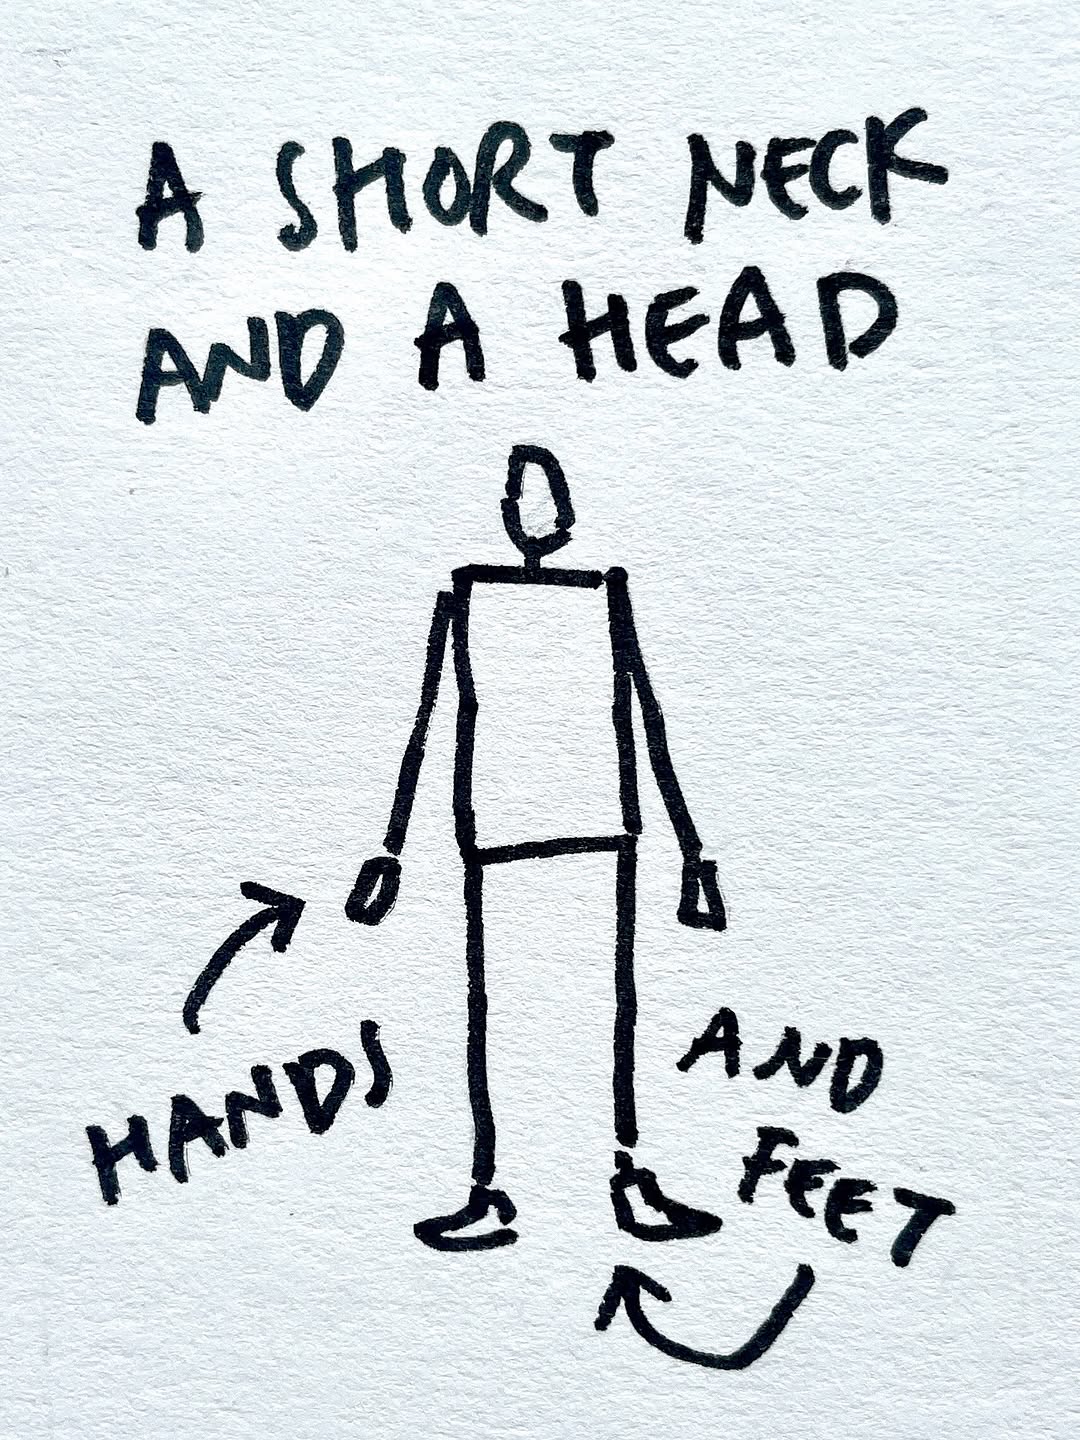 A SHORT NECK
AND A HEAD
HANDS
AND
FEET